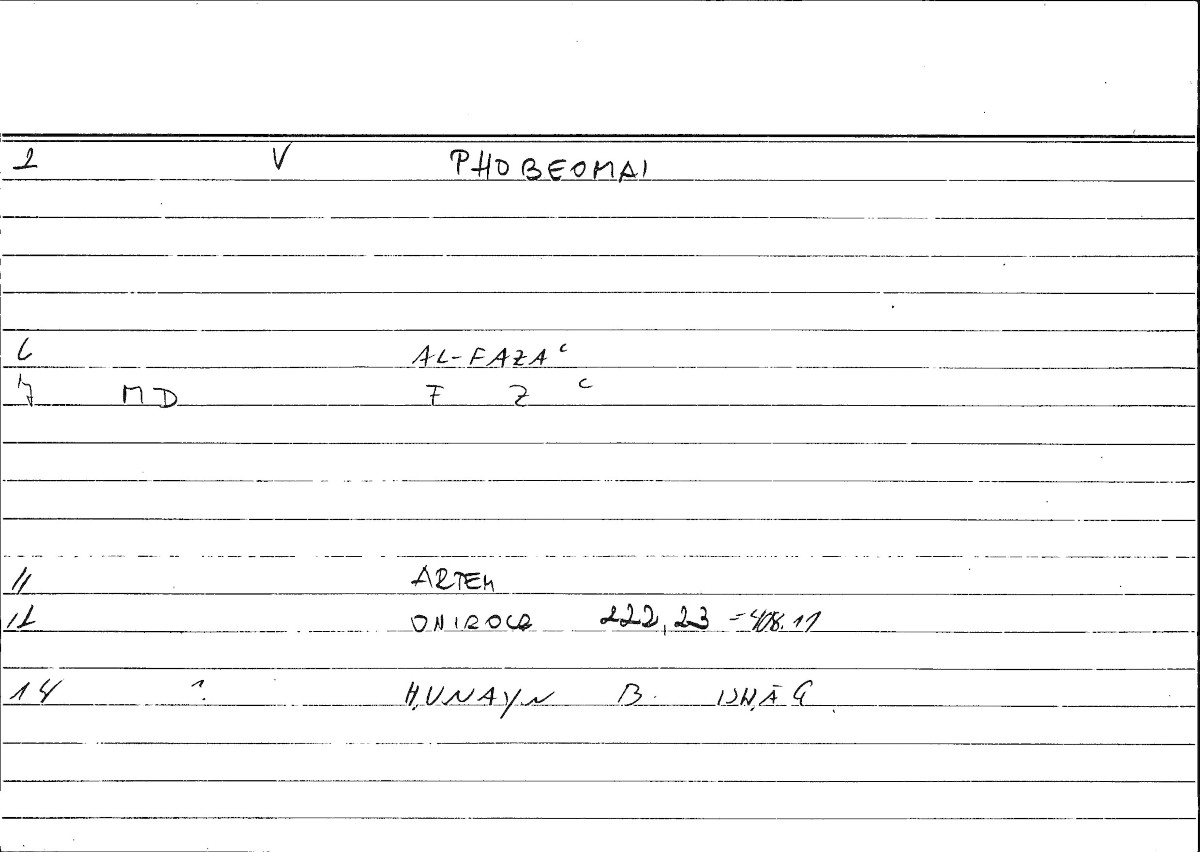 1 V PHOBEOMAI
6 AL-FAZAʿ
7 MD F Z ʿ
11 ARTEM
12 ONIROCR 222,23 = 408.11
14 ? ḤUNAYN B. ISḤĀQ